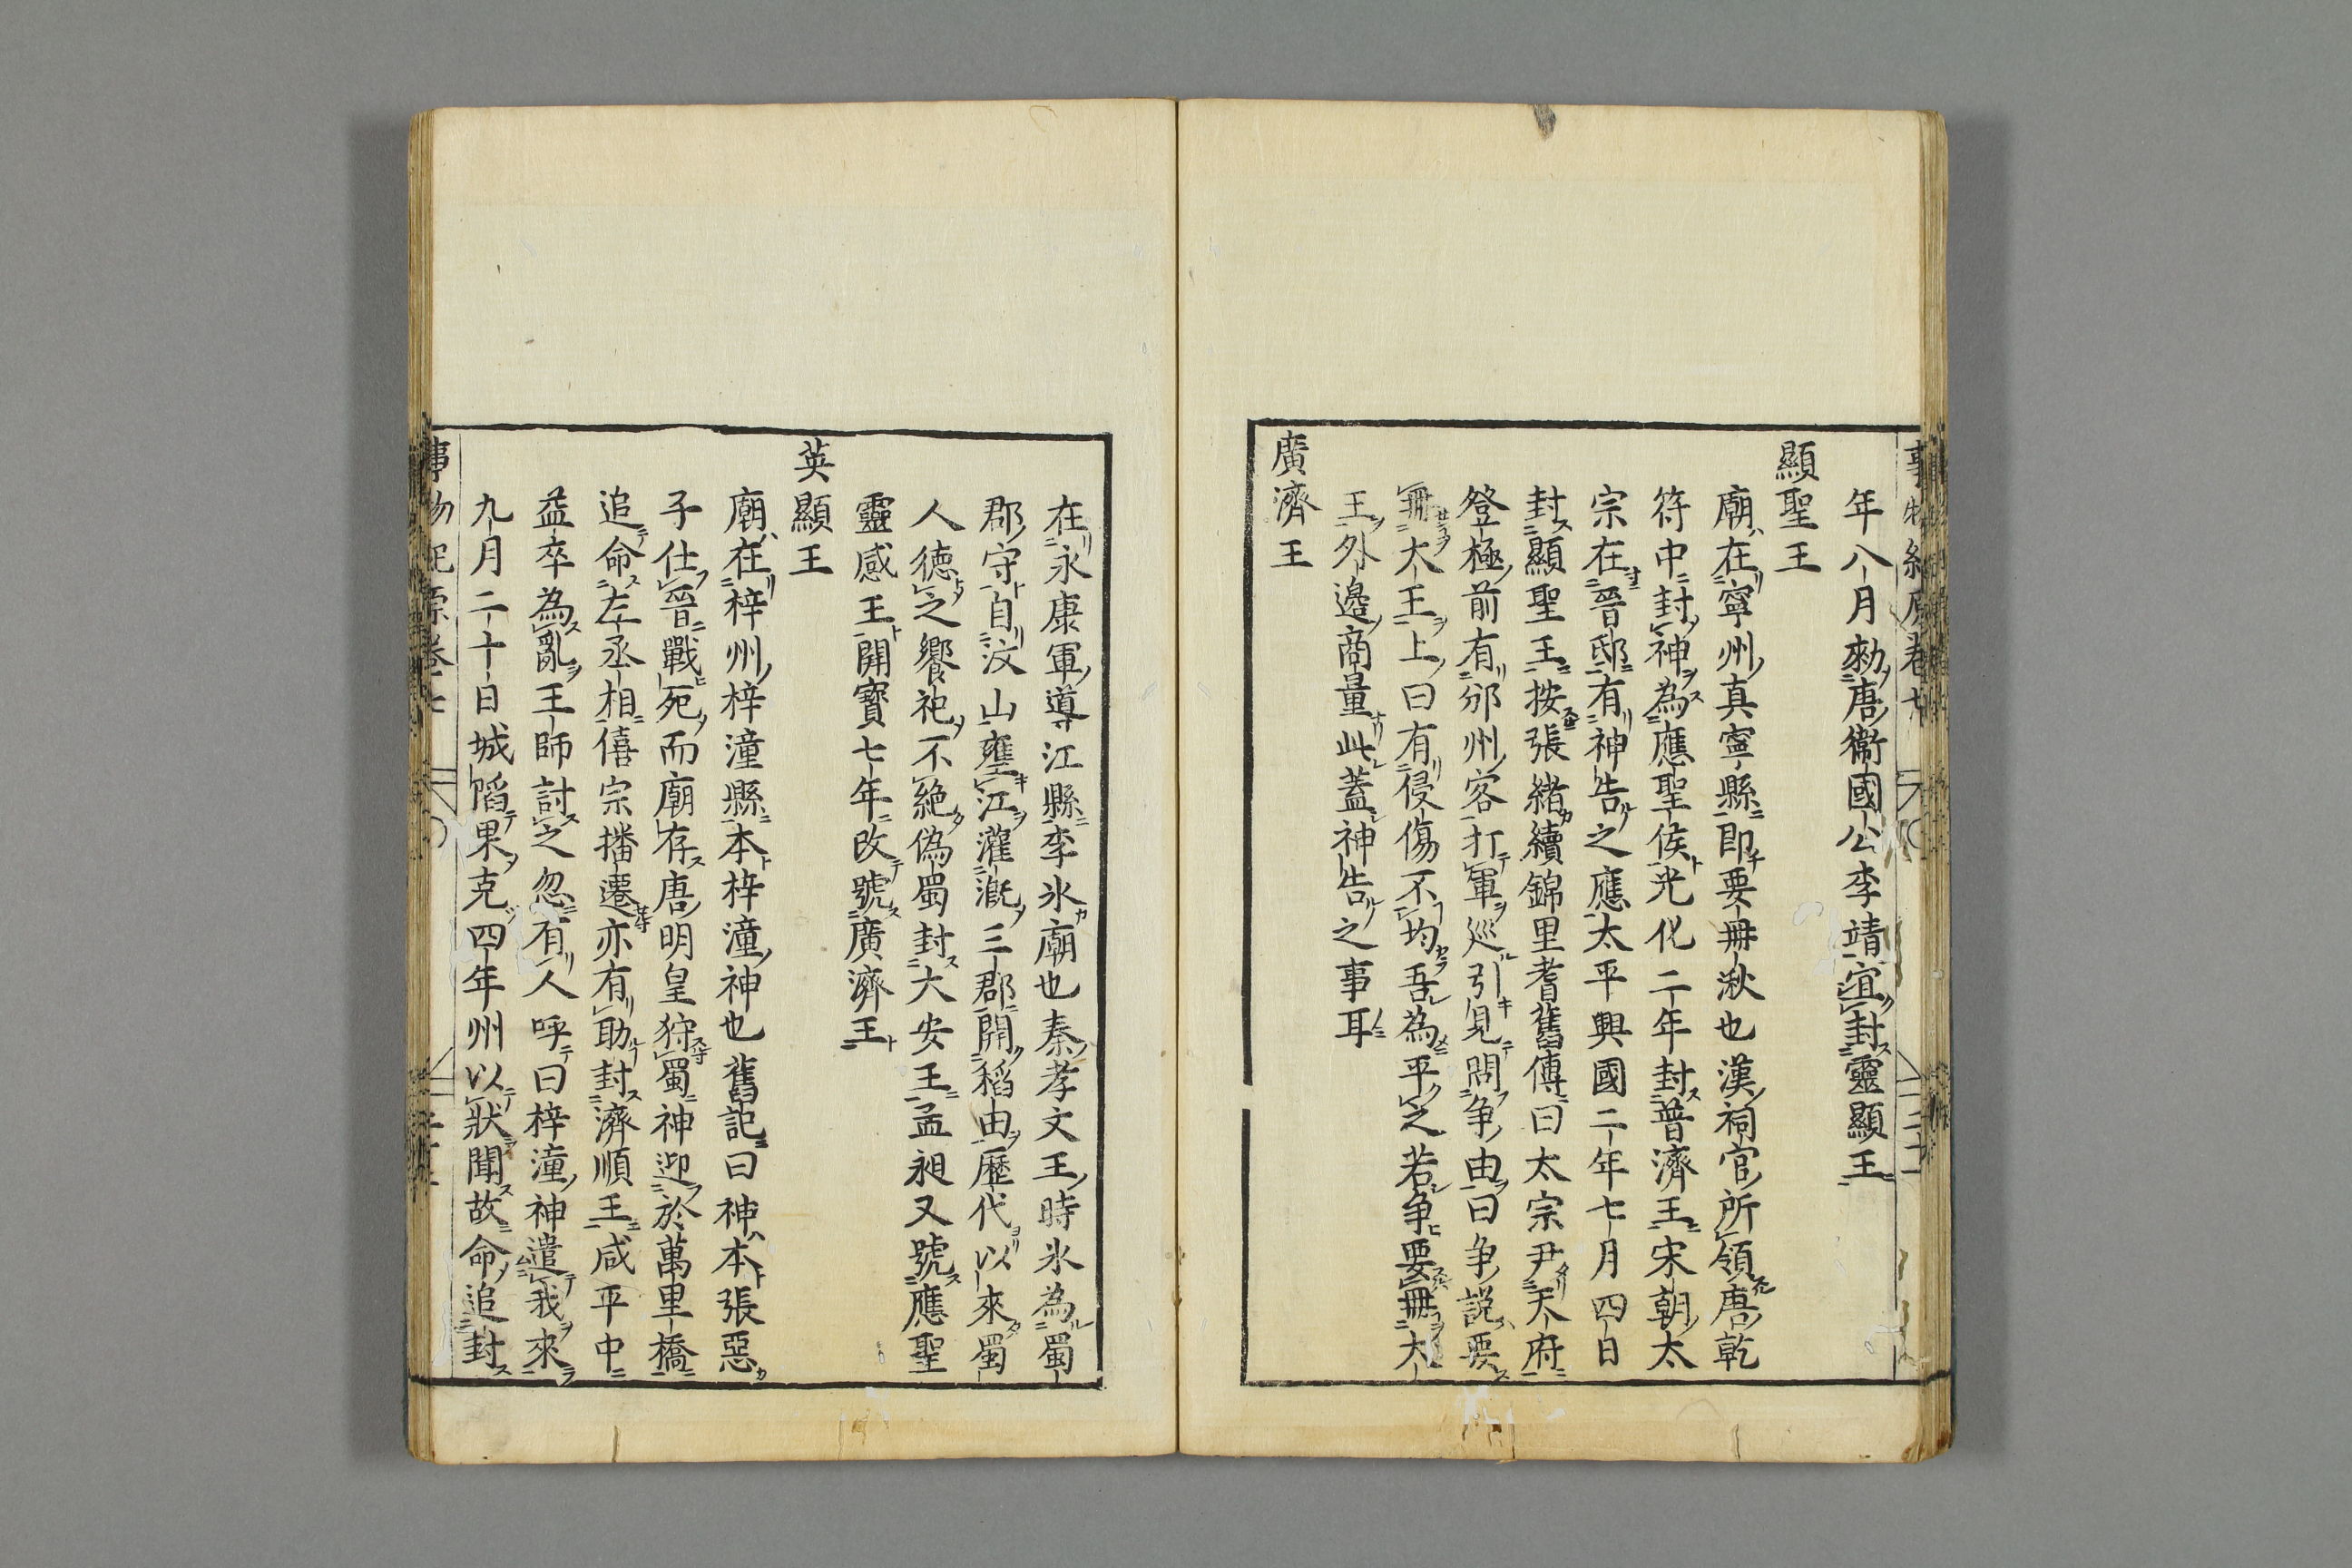 年八月勑唐衞國公李靖宜封靈顯王
顯聖王
廟在寧州真寧縣即要冊湫也漢祠官所領唐乾
符中封神為應聖侯光化二年封普濟王宋朝太
宗在晉邸有神告之應太平興國二年七月四日
封顯聖王按張緒續錦里耆舊傳曰太宗尹天府
登極前有邠州客打軍巡引見問争由曰争說要
冊大王上曰有侵傷不均吾為平之若争要冊大
王外邊商量此蓋神告之事耳
廣濟王
在永康軍導江縣李氷廟也秦孝文王時氷為蜀
郡守自汶山壅江灌漑三郡開稻由歷代以來蜀
人德之饗祀不絶偽蜀封大安王孟昶又號應聖
靈感王開寶七年改號廣濟王
英顯王
廟在梓州梓潼縣本梓潼神也舊記曰神本張惡
子仕晉戰死而廟存唐明皇狩蜀神迎於萬里橋
追命左丞相僖宗播遷亦有助封濟順王咸平中
益卒為亂王師討之忽有人呼曰梓潼神遣我來
九月二十日城䧟果克四年州以狀聞故命追封